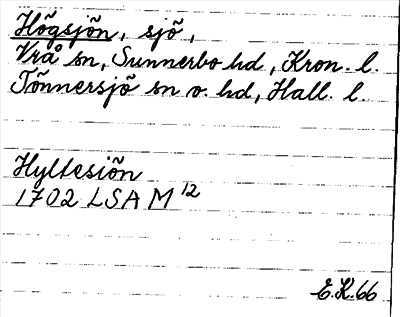 Högsjön, sjö,
Vrå sn, Sunnerbo hd, Kron. l.
Tönnersjö sn o. hd, Hall. l.
Hyltesiön
1702 LSA M 12
E.K. 66